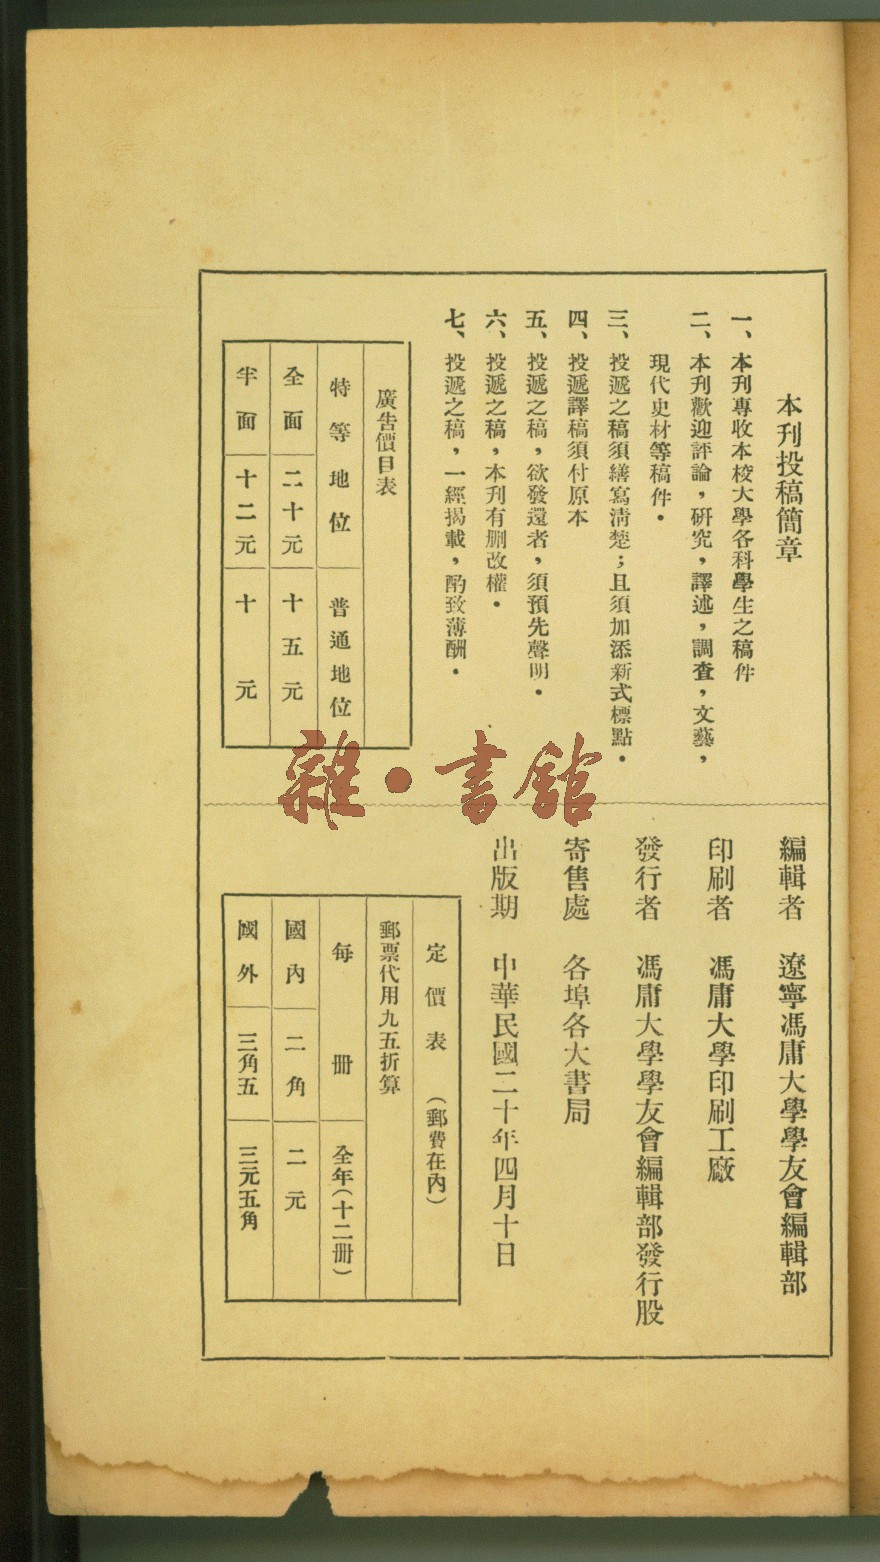 本刊投稿簡章
一、本刊專收本校大學各科學生之稿件
二、本刊歡迎評論，研究，譯述，調查，文藝，
現代史材等稿件．
三、投遞之稿須繕寫清楚；且須加添新式標點．
四、投遞譯稿須付原本
五、投遞之稿，欲發還者，須預先聲明．
六、投遞之稿，本刊有刪改權．
七、投遞之稿，一經揭載，酌致薄酬．
廣告價目表
特等地位 普通地位
全面 二十元 十五元
半面 十二元 十元
編輯者 遼寧馮庸大學學友會編輯部
印刷者 馮庸大學印刷工廠
發行者 馮庸大學學友會編輯部發行股
寄售處 各埠各大書局
出版期 中華民國二十年四月十日
定價表（郵費在內）
郵票代用九五折算
每冊 全年（十二冊）
國內 二角 二元
國外 三角五 三元五角
雜·書館